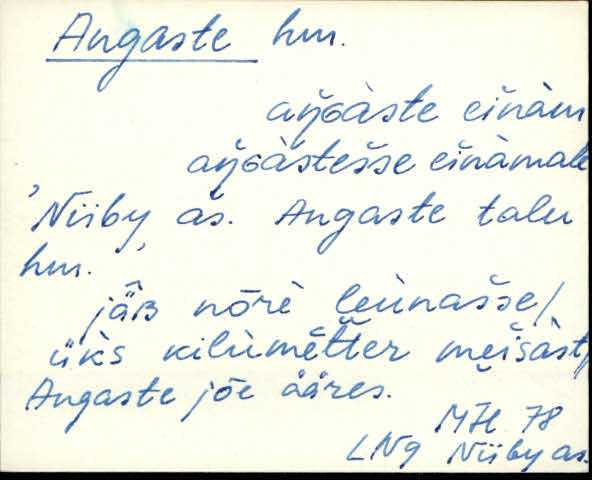 Angaste hm.
aŋ̆ɢàste eĭnàm
aŋ̆ɢàstešse eĭnàmale
'Niiby as. Angaste talu
hm.'
jä̂ʙ nōrè leùnašse/
ük̀s kilùmĕtter meĭšàst/
Angaste jõe ääres.
MH 78
LNg Niiby as.